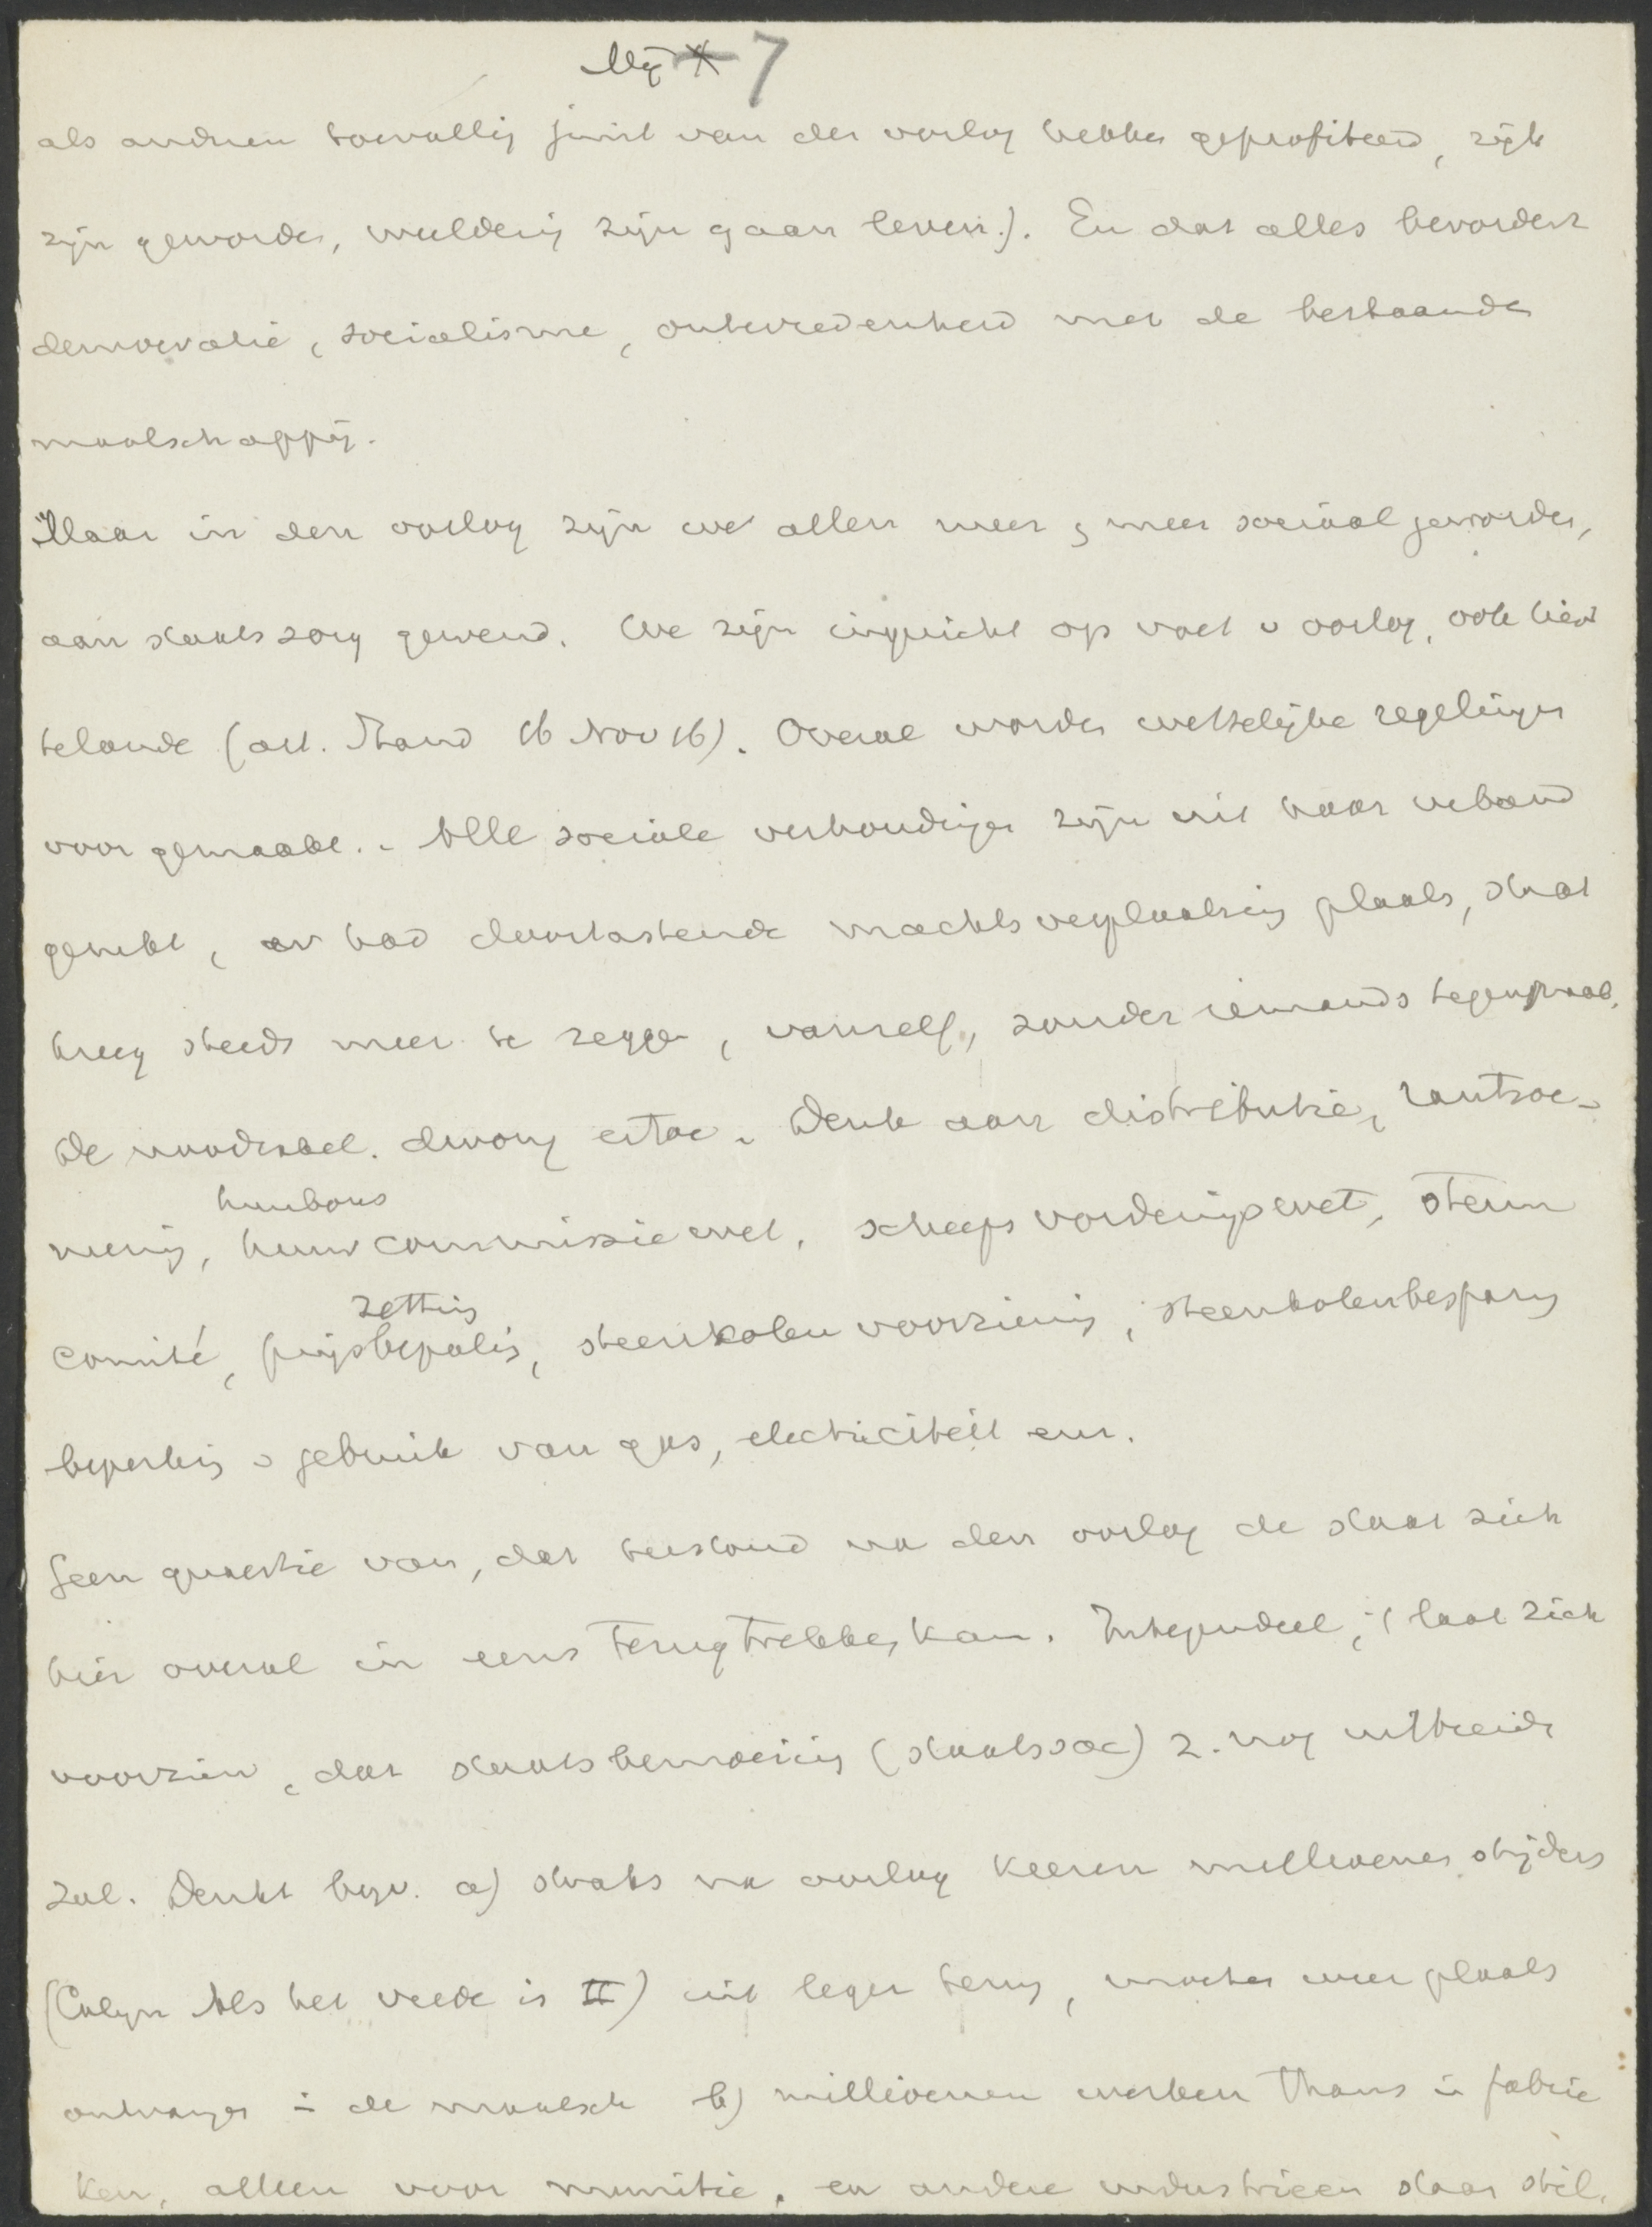 Mij 7
als anderen toevallig juist van den oorlog hebben geprofiteerd, rijk
zijn geworden, weelderig zijn gaan leven.). En dat alles bevordert
democratie, socialisme, ontevredenheid met de bestaande
maatschappij.
Maar in den oorlog zijn we allen meer en meer sociaal geworden,
aan staatszorg gewend. We zijn ingericht op voet v oorlog, ook hier
telande (art. Stand 16 Nov 16). Overal worden wettelijke regelingen
voor gemaakt. Alle sociale verhoudingen zijn uit haar verband
gerukt, er had doortastende machtsverplaatsing plaats, staat
kreeg steeds meer te zeggen, vanzelf, zonder iemands tegenspraak.
De noodzakel. dwong ertoe. Denk aan distributie, rantsoe-
huurbons
neering, huurcommissiewet, scheepsvorderingswet, steun
zetting
comité, prijsbepaling, steenkolenvoorziening, steenkolenbesparing
beperking v gebruik van gas, electriciteit enz.
Geen quaestie van, dat terstond na den oorlog de staat zich
hier overal in eens terugtrekken kan. Integendeel, 't laat zich
voorzien, dat staatsbemoeiing (staatssoc) z. nog uitbreiden
zal. Denkt bijv. a) straks na oorlog keeren millioenen strijders
(Colijn Als het vrede is II) uit leger terug, moeten weer plaats
ontvangen in de maatsch b) millioenen werken thans in fabrie
ken, alleen voor munitie, en andere industrieen staan stil.